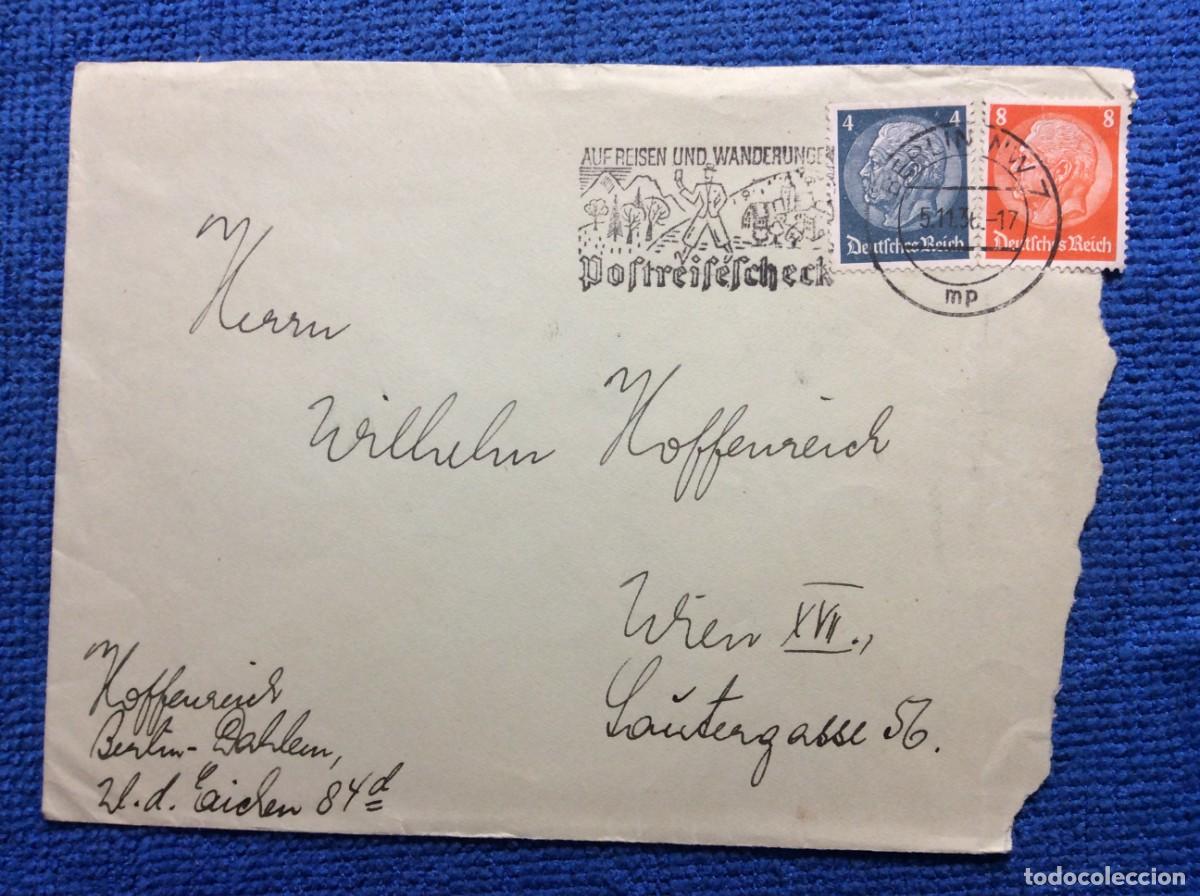 4 4
8 8
Deutsches Reich
Deutsches Reich
AUF REISEN UND WANDERUNGEN
Postreisescheck
BERLIN NW 7
5.11.36.-17
mp
Herrn
Wilhelm Hoffenreich
Wien XVII.,
Lautergasse 56.
Hoffenreich
Berlin-Dahlem,
U.d. Eichen 84d
todocoleccion